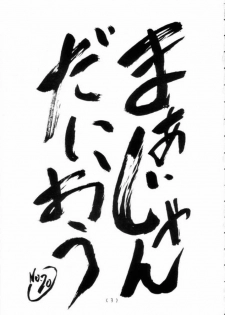 まぁじゃん
だいおう
No.20